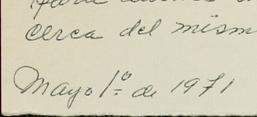 cerca del mism
Mayo 1º de 1971